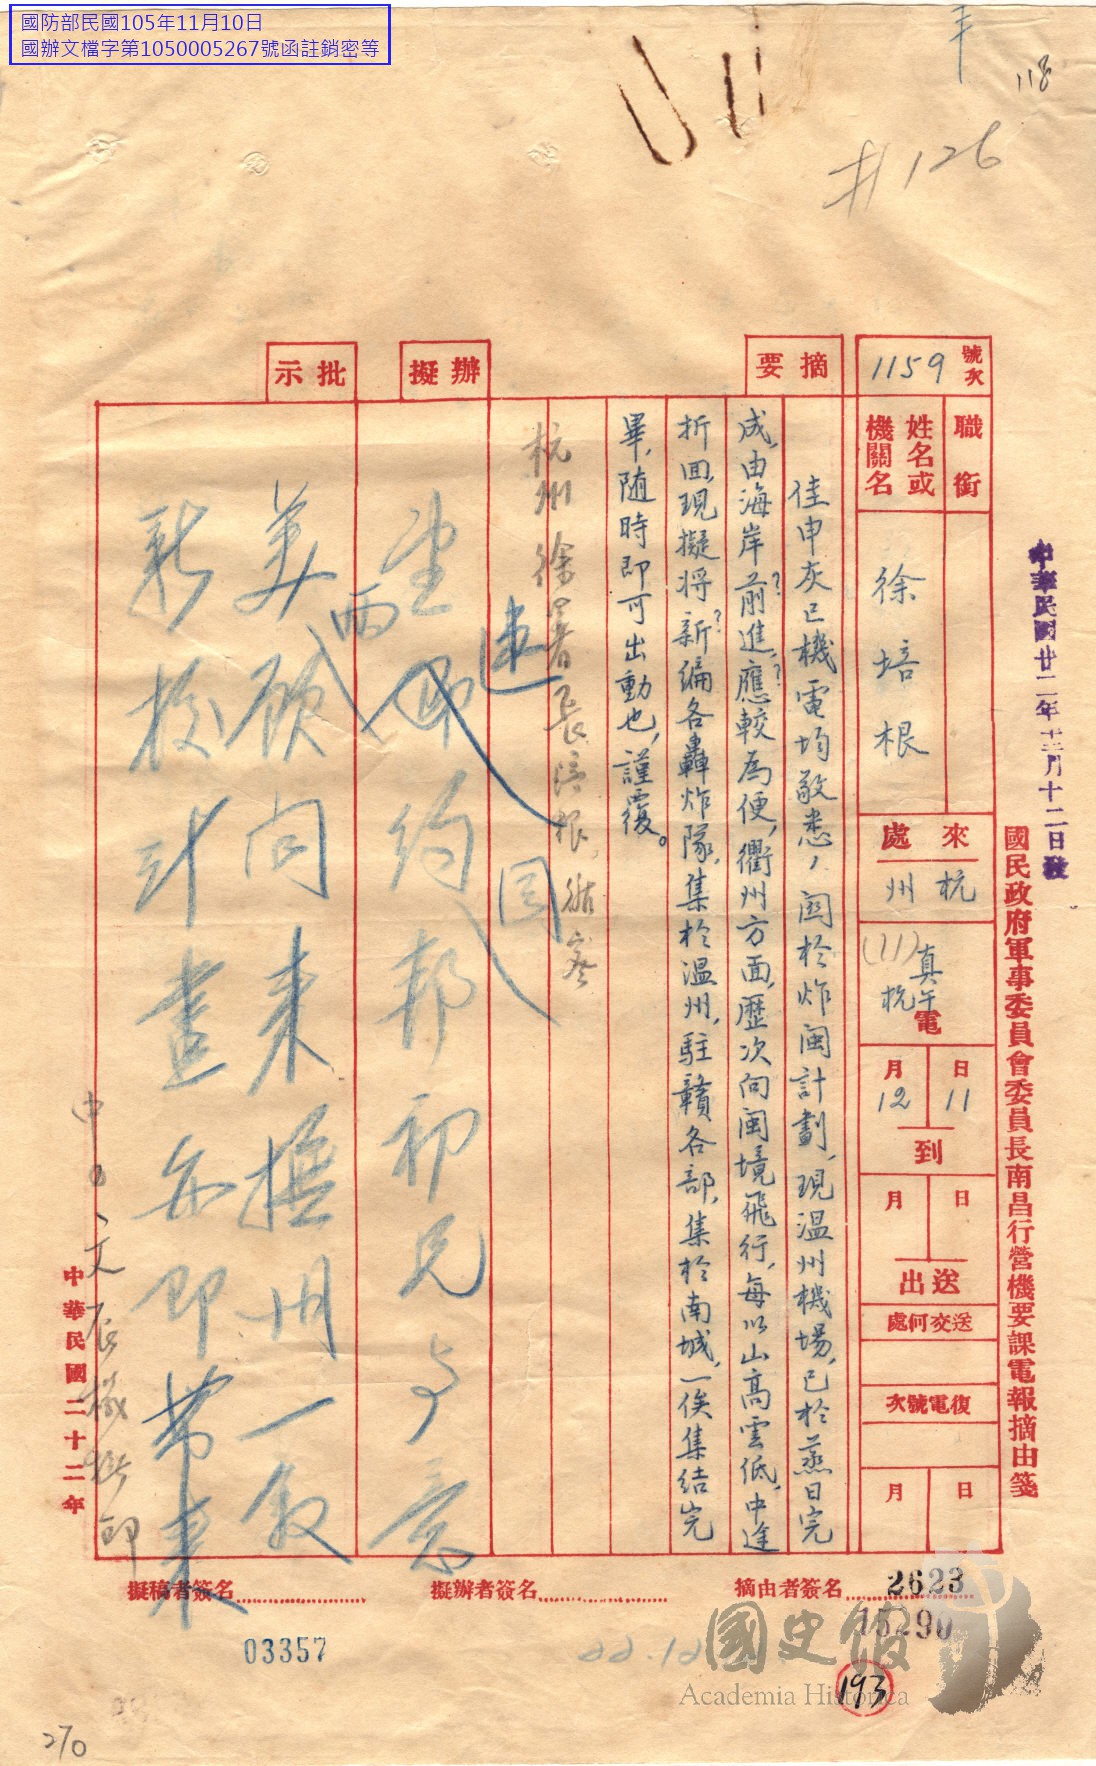 國防部民國105年11月10日
國辦文檔字第1050005267號函註銷密等
118
#126
中華民國廿二年十二月十二日發
國民政府軍事委員會委員長南昌行營機要課電報摘由箋
號次
1159
職銜
姓名或機關名
徐培根
來處
杭州
真午杭電
(11)
月12
日11
到
月
日
送出
送交何處
復電號次
月
日
摘要
佳申灰已機電均敬悉，關於炸閩計劃，現温州機場，已於蒸日完
成，由海岸前進，應較為便，衢州方面，歷次向閩境飛行，每以山高雲低，中途
折回，現擬將新編各轟炸隊，集於温州，駐贛各部，集於南城，一俟集結完
畢，随時即可出動也，謹覆。
擬辦
杭州徐署長培根
速回
批示
兩
約邦初兄與意
美顧問來撫州一敘
新校計畫亦即帶來
中正文辰機撫印
中華民國二十二年
摘由者簽名
擬辦者簽名
擬稿者簽名
2623
15290
03357
22.12
193
270
國史館
Academia Historica